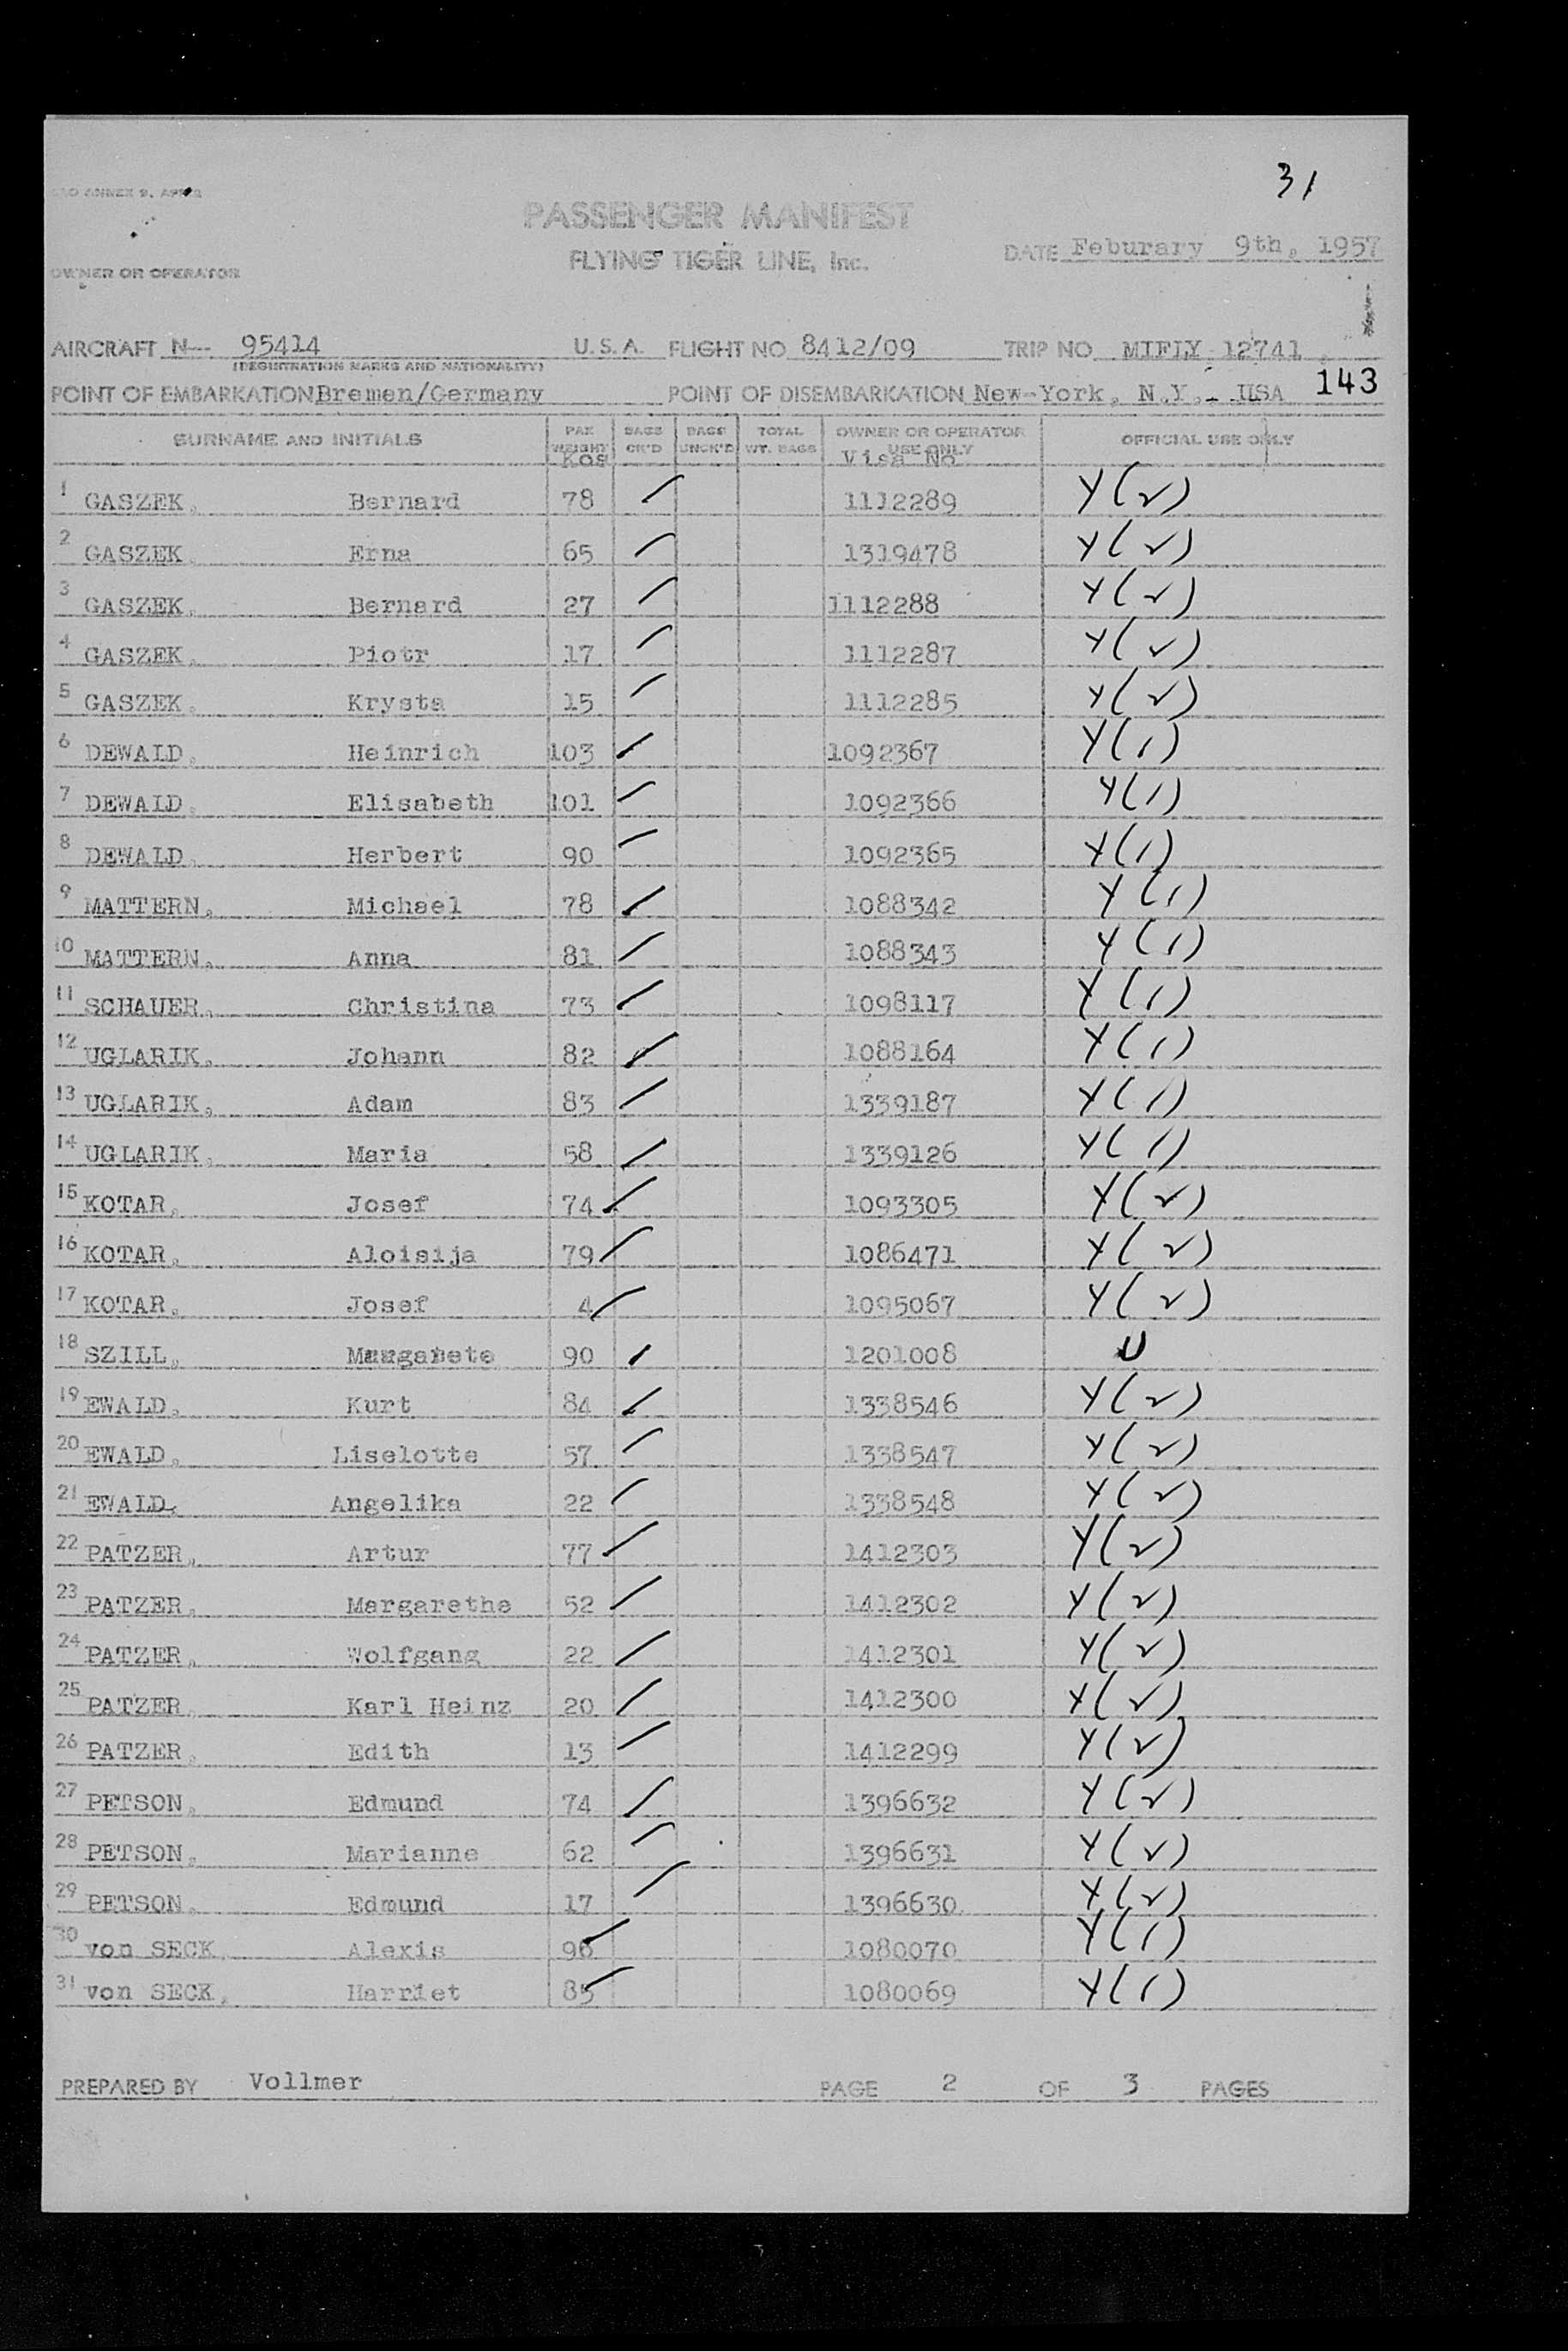 31
PASSENGER MANIFEST
FLYING TIGER LINE, Inc.
DATE Feburary 9th, 1957
OWNER OR OPERATOR
AIRCRAFT N-- 95414 U.S.A. FLIGHT NO 8412/09 TRIP NO MIFLY 12741
(REGISTRATION MARKS AND NATIONALITY)
POINT OF EMBARKATION Bremen/Germany POINT OF DISEMBARKATION New-York, N.Y. - USA 143
SURNAME AND INITIALS PAX WEIGHT Kos BAGS CK'D BAGS UNCK'D TOTAL WT. BAGS OWNER OR OPERATOR USE ONLY Visa No OFFICIAL USE ONLY
1 GASZEK, Bernard 78 1112289 Y(2)
2 GASZEK, Erna 65 1319478 Y(2)
3 GASZEK, Bernard 27 1112288 Y(2)
4 GASZEK, Piotr 17 1112287 Y(2)
5 GASZEK, Krysta 15 1112285 Y(2)
6 DEWALD, Heinrich 103 1092367 Y(1)
7 DEWALD, Elisabeth 101 1092366 Y(1)
8 DEWALD, Herbert 90 1092365 Y(1)
9 MATTERN, Michael 78 1088342 Y(1)
10 MATTERN, Anna 81 1088343 Y(1)
11 SCHAUER, Christina 73 1098117 Y(1)
12 UGLARIK, Johann 82 1088164 Y(1)
13 UGLARIK, Adam 83 1339187 Y(1)
14 UGLARIK, Maria 58 1339126 Y(1)
15 KOTAR, Josef 74 1093305 Y(2)
16 KOTAR, Aloisija 79 1086471 Y(2)
17 KOTAR, Josef 4 1095067 Y(2)
18 SZILL, 90 1201008 U
19 EWALD, Kurt 84 1338546 Y(2)
20 EWALD, Liselotte 57 1338547 Y(2)
21 EWALD, Angelika 22 1338548 Y(2)
22 PATZER, Artur 77 1412303 Y(2)
23 PATZER, Margarethe 52 1412302 Y(2)
24 PATZER, Wolfgang 22 1412301 Y(2)
25 PATZER, Karl Heinz 20 1412300 Y(2)
26 PATZER, Edith 13 1412299 Y(2)
27 PETSON, Edmund 74 1396632 Y(2)
28 PETSON, Marianne 62 1396631 Y(2)
29 PETSON, Edmund 17 1396630 Y(2)
30 von SECK, Alexis 96 1080070 Y(1)
31 von SECK, Harriet 85 1080069 Y(1)
PREPARED BY Vollmer PAGE 2 OF 3 PAGES